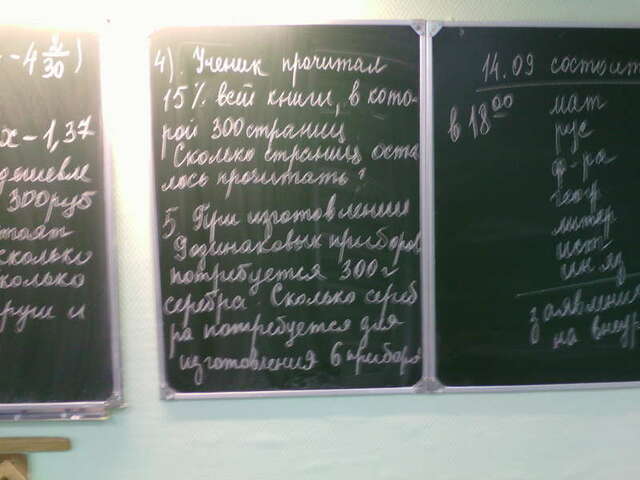 - 4 /30)
х - 1,37
дешевле
300 руб
сколько
сколько
груш и
4). Ученик прочитал
15% всей книги, в кото-
рой 300 страниц.
Сколько страниц оста
лось прочитать?
5. При изготовлении
9 одинаковых приборов
потребуется 300 г
серебра. Сколько сереб
ра потребуется для
изготовления 6 приборов
14.09 состоит
в 18⁰⁰
мат
рус
ф-ра
геог
литер
ист.
ин.яз
заявления
на внеур